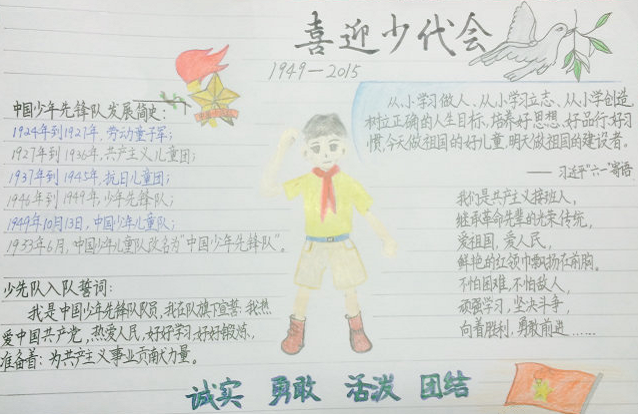 喜迎少代会
1949—2015
中国少年先锋队发展简史：
1924年到1927年，劳动童子军；
1927年到1936年，共产主义儿童团；
1937年到1945年，抗日儿童团；
1946年到1949年，少年先锋队；
1949年10月13日，中国少年儿童队；
1953年6月，中国少年儿童队改名为“中国少年先锋队”。
少先队入队誓词：
我是中国少年先锋队队员，我在队旗下宣誓：我热
爱中国共产党，热爱人民，好好学习，好好锻炼，
准备着：为共产主义事业贡献力量。
从小学习做人、从小学习立志、从小学创造
树立正确的人生目标，培养好思想、好品行、好习
惯，今天做祖国的好儿童，明天做祖国的建设者。
——习近平“六一”寄语
我们是共产主义接班人，
继承革命先辈的光荣传统，
爱祖国，爱人民，
鲜艳的红领巾飘扬在前胸。
不怕困难，不怕敌人，
顽强学习，坚决斗争，
向着胜利，勇敢前进……
诚实 勇敢 活泼 团结